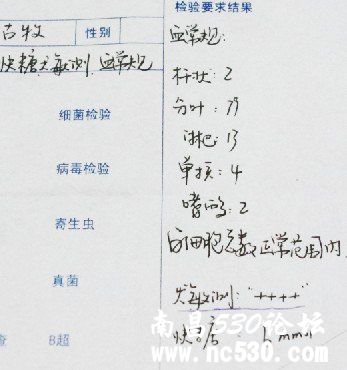 检验要求结果
古牧 性别
血常规:
快糖, 犬敏测, 血常规
杆状: 2
分叶: 79
细菌检验
淋巴: 13
病毒检验
单核: 4
嗜酸: 2
寄生虫
白细胞总数正常范围内
真菌
犬敏测: "++++"
快糖
B超
mmol
南昌530论坛
www.nc530.com